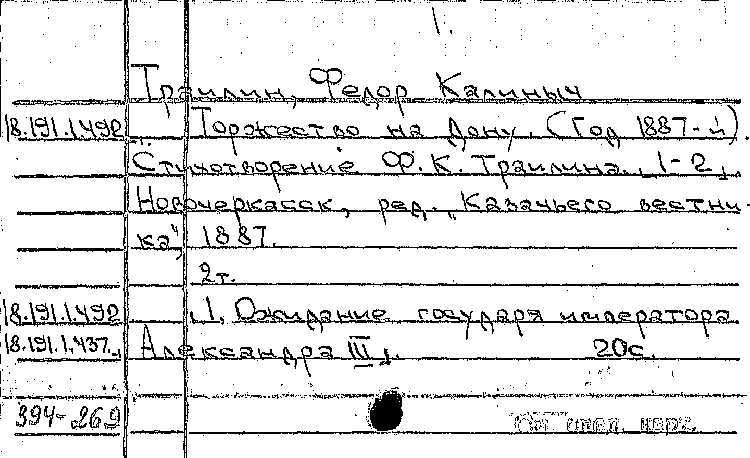 1.
Траилин, Федор Калиныч
18.191.1.492 Торжество на Дону. (Год 1887-й).
Стихотворение Ф. К. Траилина. 1-2.
Новочеркасск, ред. "Казачьего вестни-
ка", 1887.
2т.
18.191.1.492 1. Ожидание государя императора
18.191.1.437. Александра III. 20с.
394-269 См. след. карт.